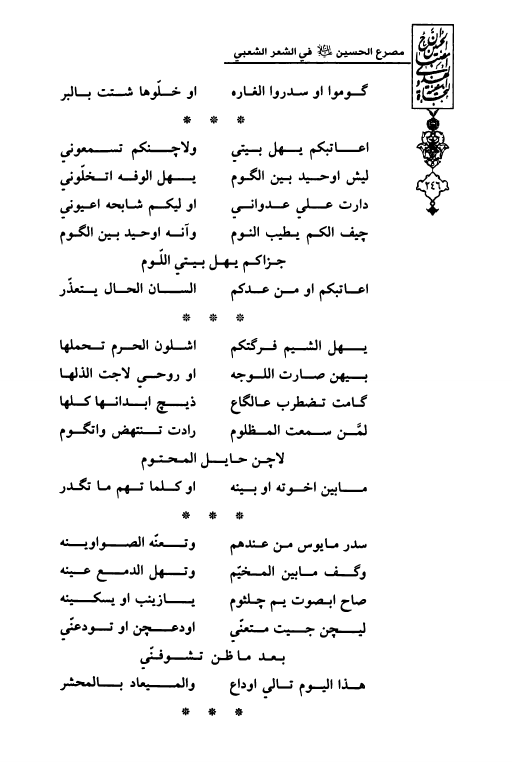 مصرع الحسين في الشعر الشعبي
٢٤٦
گوموا او سدروا الغاره او خلّوها شتت بالبر
* * *
اعاتبكم يهل بيتي ولاچنكم تسمعوني
ليش اوحيد بين الگوم يهل الوفه اتخلّوني
دارت علي عدواني او ليكم شابحه اعيوني
چيف الكم يطيب النوم وآنه اوحيد بين الگوم
جزاكم يهل بيتي اللّوم
اعاتبكم او من عدكم السان الحال يتعذّر
* * *
يهل الشيم فرگتكم اشلون الحرم تحملها
بيهن صارت اللوجه او روحي لاجت الذلها
گامت تضطرب عالگاع ذيچ ابدانها كلها
لمّن سمعت المظلوم رادت تنتهض واتگوم
لاچن حايل المحتوم
مابين اخوته او بينه او كلما تهم ما تگدر
* * *
سدر مايوس من عندهم وتعنّه الصواوينه
وگف مابين المخيّم وتهل الدمع عينه
صاح ابصوت يم چلثوم يازينب او يسكينه
ليچن جيت متعنّي اودعچن او تودعنّي
بعد ماظن تشوفنّي
هذا اليوم تالي اوداع والميعاد بالمحشر
* * *